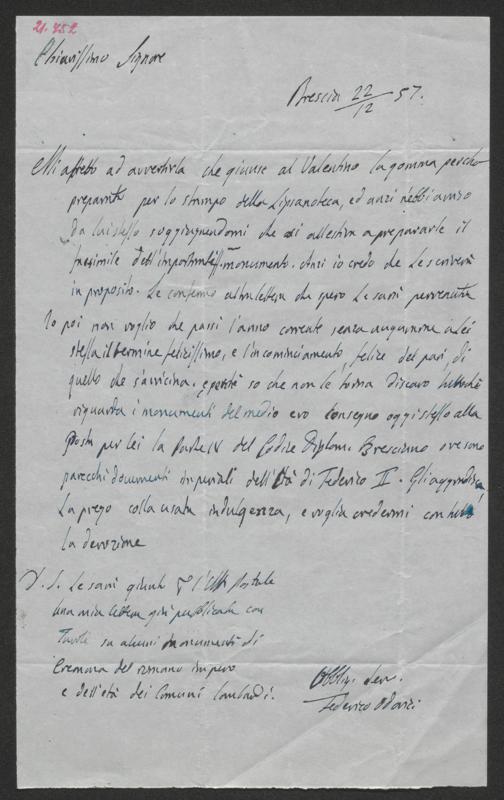 21.452
Chiarissimo Signore
Brescia 22/12 57.
Mi affretto ad avvertirla che giunse al Valentino la gomma perchè
preparata per lo stampo della Lipsanoteca, ed anzi n'ebbi avviso
da lui stesso soggiungendomi che si allestiva a prepararle il
facsimile dell'importantiss. monumento. Anzi io credo che Le scriverà
in proposito. Le confermo altra lettera che spero Le sarà pervenuta
Io poi non voglio che passi l'anno corrente senza augurarne a Lei
stessa il termine felicissimo, e l'incominciamento, felice del pari, di
quello che s'avvicina. e perchè so che non le torna discaro tuttochè
riguarda i monumenti del medio evo consegno oggi stesso alla
Posta per lei la Parte IV del Codice Diplom. Bresciano ove sono
parecchi documenti imperiali dell'Età di Federico II. Gli aggradisca
La prego colla usata indulgenza, e voglia credermi con tutta
la devozione
P. S. Le sarà giunta l'Uff. Postale
una mia lettera già pubblicata con
Tavole su alcuni monumenti di
Cremona del romano impero
e dell'età dei Comuni lombardi.
Obblig. Serv.
Federico Odorici